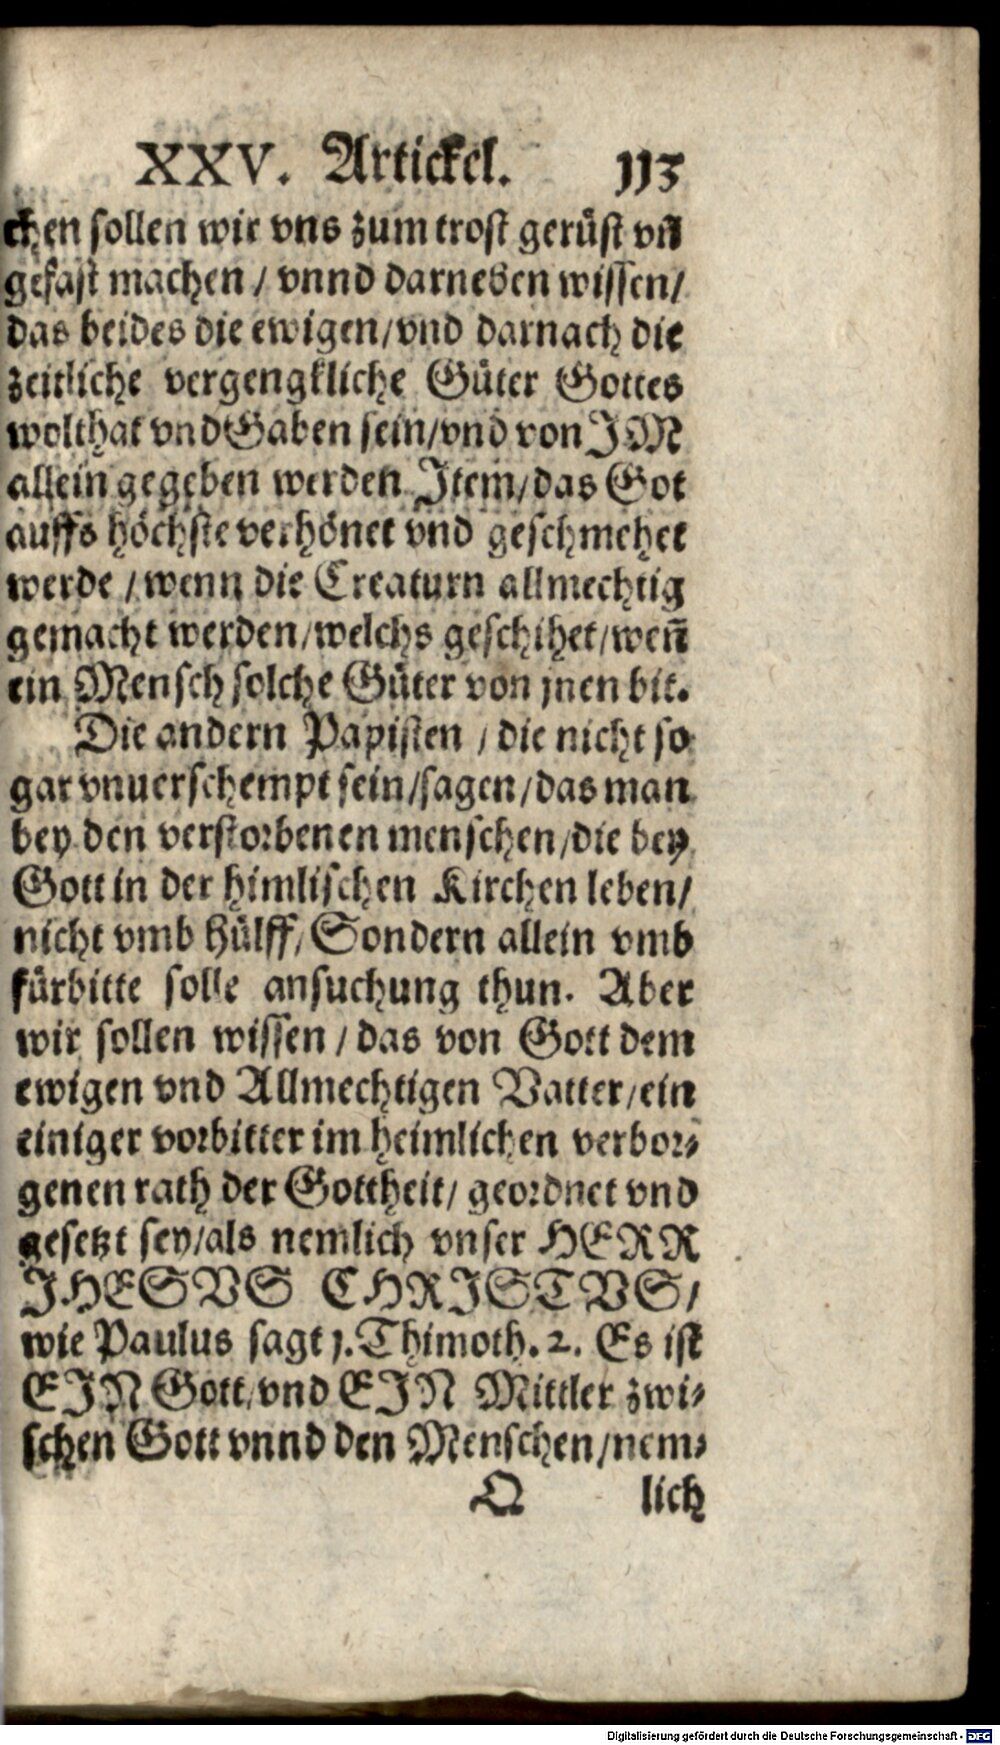 XXV. Artickel. 113
chen sollen wir vns zum trost gerüst vñ
gefast machen / vnnd darneben wissen /
das beides die ewigen / vnd darnach die
zeitliche vergengkliche Güter Gottes
wolthat vnd Gaben sein / vnd von JM
allein gegeben werden Jtem / das Got
auffs höchste verhönet vnd geschmehet
werde / wenn die Creaturn allmechtig
gemacht werden / welchs geschihet / weñ
ein Mensch solche Güter von jnen bit.
Die andern Papisten / die nicht so
gar vnuerschempt sein / sagen / das man
bey den verstorbenen menschen / die bey
Gott in der himlischen Kirchen leben /
nicht vmb hülff / Sondern allein vmb
fürbitte solle ansuchung thun. Aber
wir sollen wissen / das von Gott dem
ewigen vnd Allmechtigen Vatter / ein
einiger vorbitter im heimlichen verbor⸗
genen rath der Gottheit / geordnet vnd
gesetzt sey / als nemlich vnser HERR
JHESVS CHRISTVS /
wie Paulus sagt 1. Thimoth. 2. Es ist
EJN Gott / vnd EJN Mittler zwi⸗
schen Gott vnnd den Menschen / nem⸗
Q lich
Digitalisierung gefördert durch die Deutsche Forschungsgemeinschaft - DFG